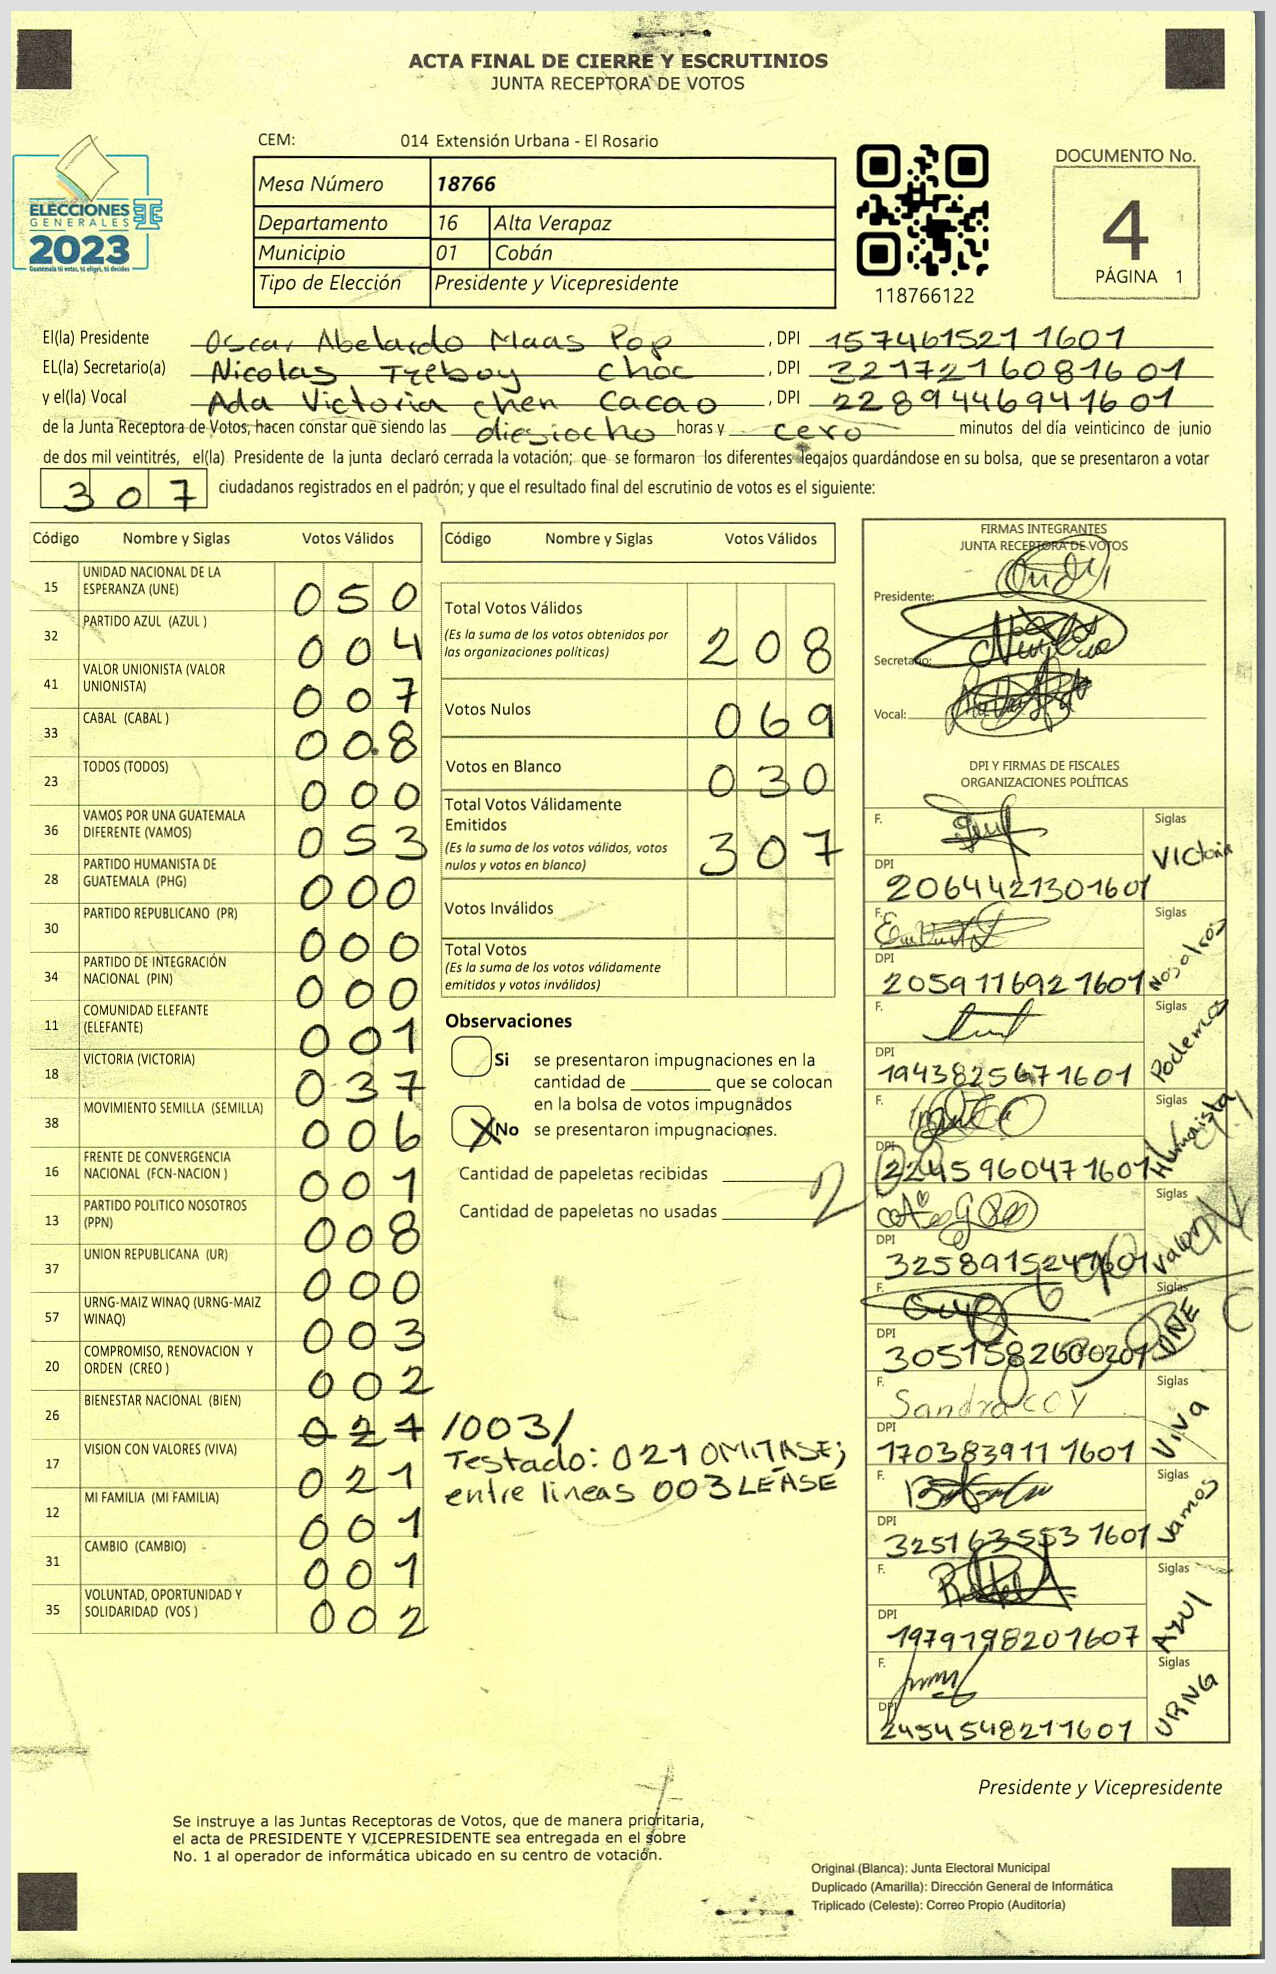 ACTA FINAL DE CIERRE Y ESCRUTINIOS
JUNTA RECEPTORA DE VOTOS
CEM: 014 Extensión Urbana - El Rosario
Mesa Número 18766
Departamento 16 Alta Verapaz
Municipio 01 Cobán
Tipo de Elección Presidente y Vicepresidente
ELECCIONES
GENERALES
2023
Guatemala tú votas, tú eliges, tú decides
118766122
DOCUMENTO No.
4
PÁGINA 1
El(la) Presidente Oscar Abelardo Maas Pop, DPI 1574615211601
EL(la) Secretario(a) Nicolas Choc, DPI 3217216081601
y el(la) Vocal Ada Victoria chen cacao, DPI 2289446941601
de la Junta Receptora de Votos, hacen constar que siendo las diesiocho horas y cero minutos del día veinticinco de junio
de dos mil veintitrés, el(la) Presidente de la junta declaró cerrada la votación; que se formaron los diferentes legajos guardándose en su bolsa, que se presentaron a votar
307 ciudadanos registrados en el padrón; y que el resultado final del escrutinio de votos es el siguiente:
Código Nombre y Siglas Votos Válidos
15 UNIDAD NACIONAL DE LA ESPERANZA (UNE) 050
32 PARTIDO AZUL (AZUL ) 004
41 VALOR UNIONISTA (VALOR UNIONISTA) 007
33 CABAL (CABAL ) 008
23 TODOS (TODOS) 000
36 VAMOS POR UNA GUATEMALA DIFERENTE (VAMOS) 053
28 PARTIDO HUMANISTA DE GUATEMALA (PHG) 000
30 PARTIDO REPUBLICANO (PR) 000
34 PARTIDO DE INTEGRACIÓN NACIONAL (PIN) 000
11 COMUNIDAD ELEFANTE (ELEFANTE) 001
18 VICTORIA (VICTORIA) 037
38 MOVIMIENTO SEMILLA (SEMILLA) 006
16 FRENTE DE CONVERGENCIA NACIONAL (FCN-NACION ) 001
13 PARTIDO POLITICO NOSOTROS (PPN) 008
37 UNION REPUBLICANA (UR) 000
57 URNG-MAIZ WINAQ (URNG-MAIZ WINAQ) 003
20 COMPROMISO, RENOVACION Y ORDEN (CREO ) 002
26 BIENESTAR NACIONAL (BIEN) 021 /003/
17 VISION CON VALORES (VIVA) 021
12 MI FAMILIA (MI FAMILIA) 001
31 CAMBIO (CAMBIO) 001
35 VOLUNTAD, OPORTUNIDAD Y SOLIDARIDAD (VOS ) 002
Código Nombre y Siglas Votos Válidos
Total Votos Válidos 208
(Es la suma de los votos obtenidos por
las organizaciones políticas)
Votos Nulos 069
Votos en Blanco 030
Total Votos Válidamente
Emitidos 307
(Es la suma de los votos válidos, votos
nulos y votos en blanco)
Votos Inválidos
Total Votos
(Es la suma de los votos válidamente
emitidos y votos inválidos)
Observaciones
Si se presentaron impugnaciones en la
cantidad de ________ que se colocan
en la bolsa de votos impugnados
X No se presentaron impugnaciones.
Cantidad de papeletas recibidas
Cantidad de papeletas no usadas
Testado: 021 OMITASE;
entre lineas 003 LEASE
FIRMAS INTEGRANTES
JUNTA RECEPTORA DE VOTOS
Presidente:
Secretario:
Vocal:
DPI Y FIRMAS DE FISCALES
ORGANIZACIONES POLÍTICAS
F. Siglas Victoria
DPI 2064421301601
F. Siglas Nosotros
DPI 2059116921601
F. Siglas Podemos
DPI 1943825671601
F. Siglas Humanista
DPI 2245960471601
F. Siglas Valor
DPI
F. Siglas UNE
DPI
F. Sandra COY Siglas Viva
DPI 1703839111601
F. Siglas Vamos
DPI 3251635531601
F. Siglas AZUL
DPI 1979198201607
F. Siglas URNG
DPI 2454548211601
Presidente y Vicepresidente
Se instruye a las Juntas Receptoras de Votos, que de manera prioritaria,
el acta de PRESIDENTE Y VICEPRESIDENTE sea entregada en el sobre
No. 1 al operador de informática ubicado en su centro de votación.
Original (Blanca): Junta Electoral Municipal
Duplicado (Amarilla): Dirección General de Informática
Triplicado (Celeste): Correo Propio (Auditoría)